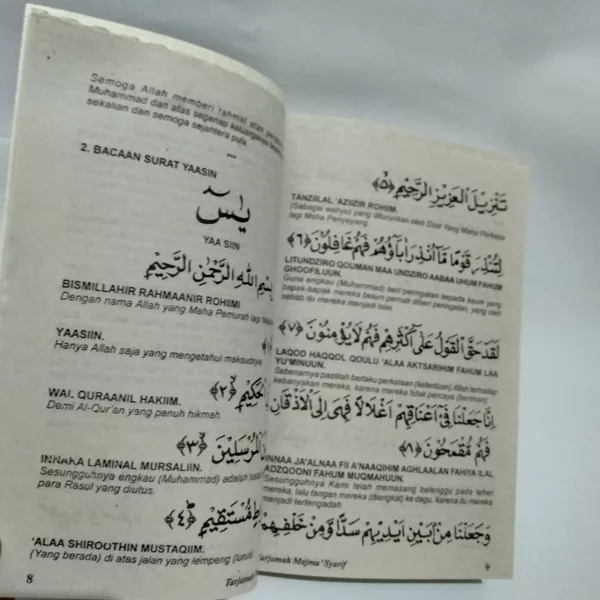 Semoga Allah memberi rahmat atas
Muhammad dan atas segenap keluarganya
sekalian dan semoga sejahtera pula.
2. BACAAN SURAT YAASIN
يٰسٓ
YAA SIIN
بِسْمِ اللّٰهِ الرَّحْمٰنِ الرَّحِيْمِ
BISMILLAHIR RAHMAANIR ROHIIMI
Dengan nama Allah yang Maha Pemurah lagi
YAASIIN.
Hanya Allah saja yang mengetahui maksudnya.
الْحَكِيْمِ ﴿٢﴾
WAL QURAANIL HAKIIM.
Demi Al-Qur'an yang penuh hikmah.
الْمُرْسَلِيْنَ ﴿٣﴾
INNAKA LAMINAL MURSALIIN.
Sesungguhnya engkau (Muhammad) adalah
para Rasul yang diutus.
مُسْتَقِيْمٍ ﴿٤﴾
'ALAA SHIROOTHIN MUSTAQIIM.
(Yang berada) di atas jalan yang lempeng
8
تَنْزِيْلَ الْعَزِيْزِ الرَّحِيْمِ ﴿٥﴾
TANZIILAL 'AZIIZIR ROHIIM.
(Sebagai wahyu) yang diturunkan oleh Dzat Yang Maha Perkasa
lagi Maha Penyayang.
لِتُنْذِرَ قَوْمًا مَّآ اُنْذِرَ اٰبَاؤُهُمْ فَهُمْ غَافِلُوْنَ ﴿٦﴾
LITUNDZIRO QOUMAN MAA UNDZIRO AABAA UHUM FAHUM
GHOOFILUUN.
Guna engkau (Muhammad) beri peringatan kepada kaum yang
bapak-bapak mereka belum pernah diberi peringatan, yang oleh
sebab itu mereka menjadi lalai.
لَقَدْ حَقَّ الْقَوْلُ عَلٰٓى اَكْثَرِهِمْ فَهُمْ لَا يُؤْمِنُوْنَ ﴿٧﴾
LAQOD HAQQOL QOULU 'ALAA AKTSARIHIM FAHUM LAA
YU'MINUUN.
Sebenarnya pastilah berlaku perkataan (ketentuan) Allah terhadap
kebanyakan mereka, karena mereka tidak percaya (beriman).
اِنَّا جَعَلْنَا فِيْٓ اَعْنَاقِهِمْ اَغْلَالًا فَهِيَ اِلَى الْاَذْقَانِ
فَهُمْ مُقْمَحُوْنَ ﴿٨﴾
INNAA JA'ALNAA FII A'NAAQIHIM AGHLAALAN FAHIYA ILAL
ADZQOONI FAHUM MUQMAHUUN.
Sesungguhnya Kami telah memasang belenggu pada leher
mereka, lalu tangan mereka (diangkat) ke dagu, karena itu mereka
menjadi tertengadah.
وَجَعَلْنَا مِنْۢ بَيْنِ اَيْدِيْهِمْ سَدًّا وَّمِنْ خَلْفِهِمْ
Tarjamah Majmu' Syarif
9